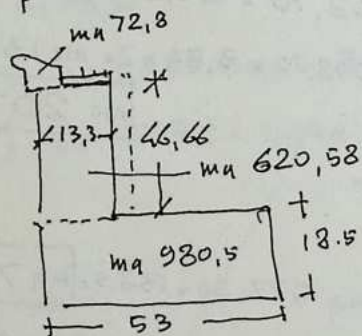 mq 72,8
13,3 46,66
mq 620,58
mq 980,5 18.5
53